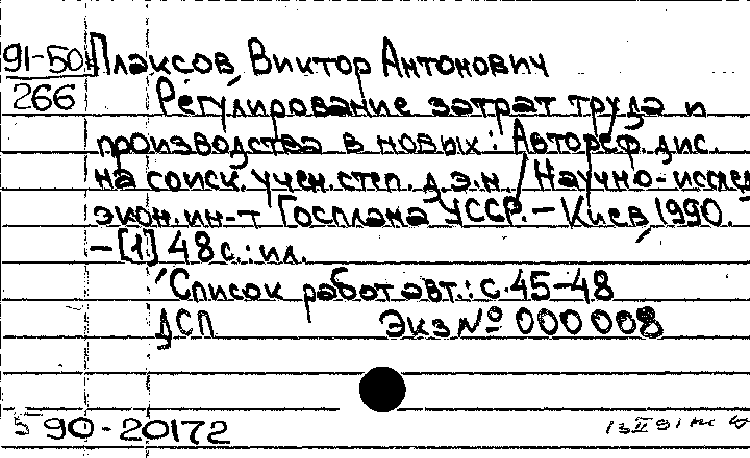 91-50 Плаксов, Виктор Антонович
266 Регулирование затрат труда и
производства в новых : Автореф. дис.
на соиск. учен. степ. д.э.н. / Научно-исслед
экон. ин-т Госплана УССР. – Киев, 1990.
– [1] 48 с. : ил.
Список работ авт.: с. 45–48
ДСП Экз № 000 008
5 90-20172